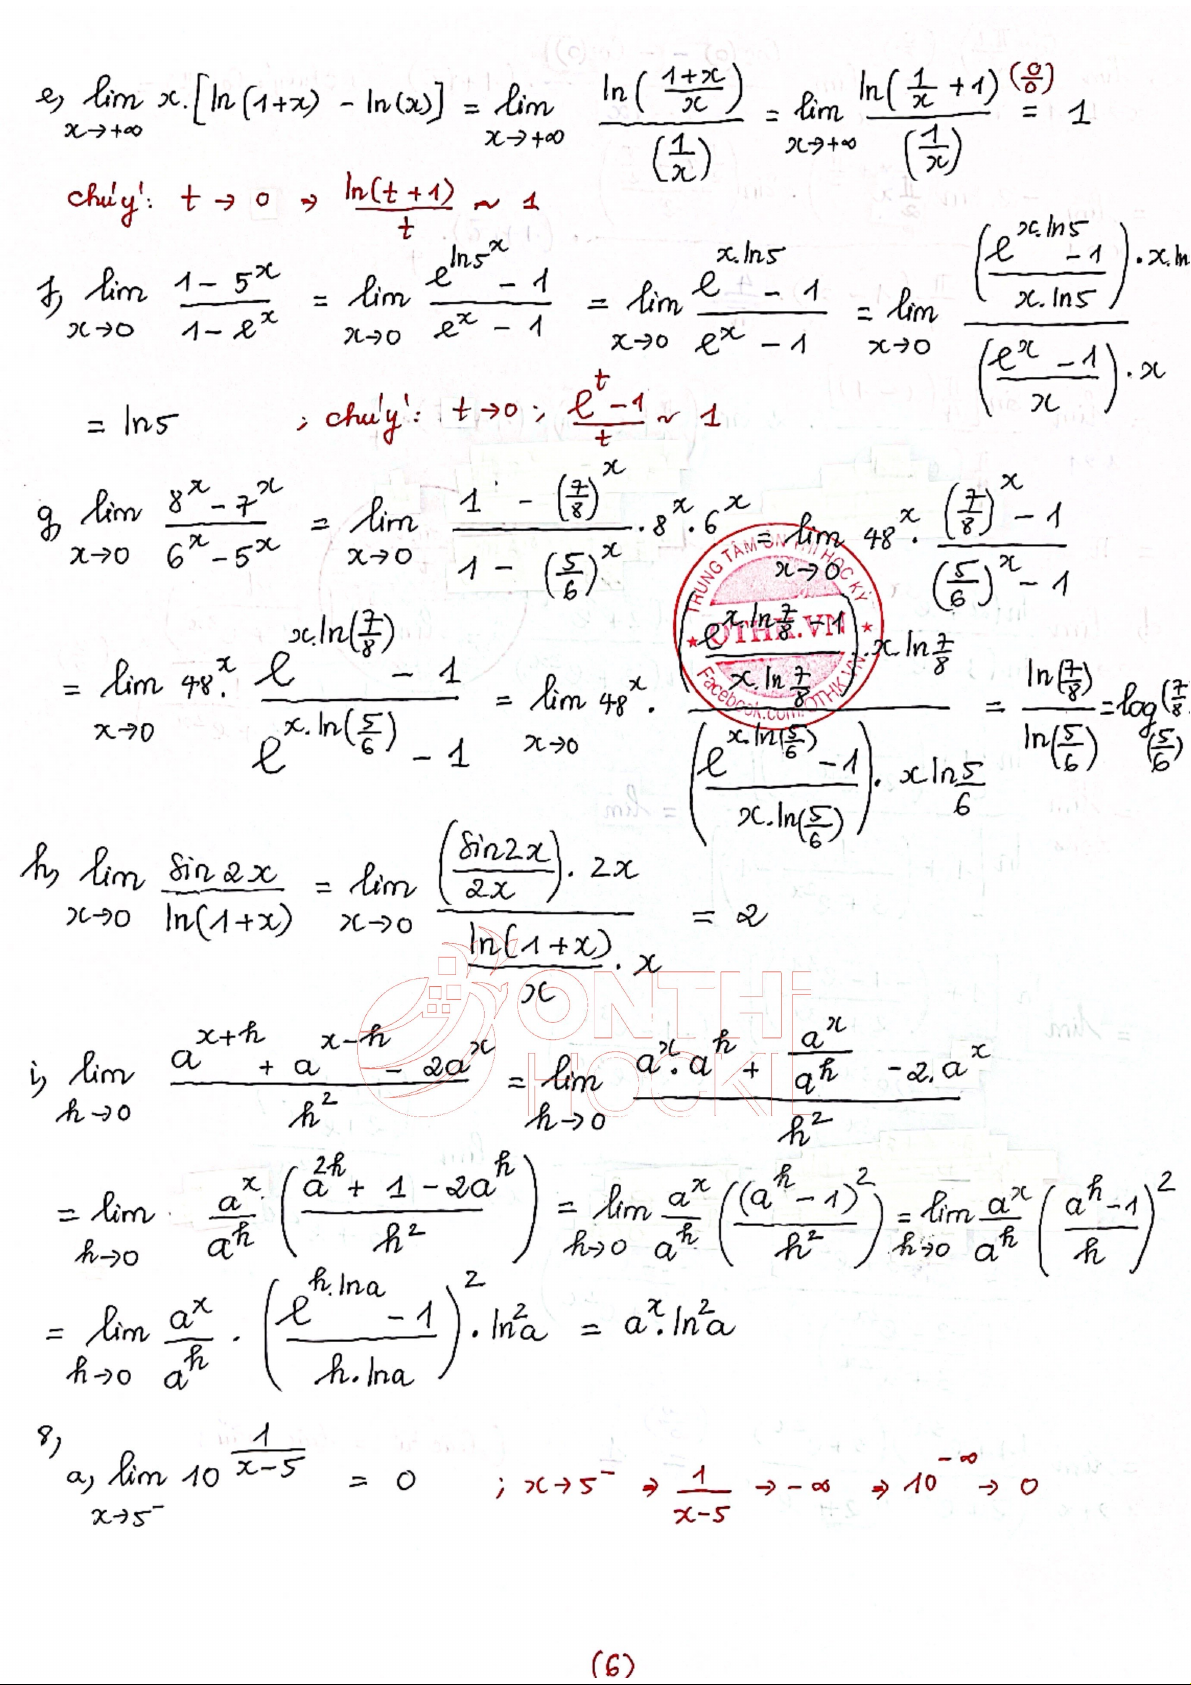 e, lim x→+∞ x.[ln(1+x) - ln(x)] = lim x→+∞ ln((1+x)/x) / (1/x) = lim x→+∞ ln(1/x + 1) / (1/x) (0/0) = 1
chú ý: t → 0 → ln(t+1)/t ~ 1
f, lim x→0 (1 - 5^x)/(1 - e^x) = lim x→0 (e^(ln5^x) - 1)/(e^x - 1) = lim x→0 (e^(x.ln5) - 1)/(e^x - 1) = lim x→0 ((e^(x.ln5) - 1)/(x.ln5)).x.ln / ((e^x - 1)/x).x
= ln5 ; chú ý: t→0 ; (e^t - 1)/t ~ 1
g, lim x→0 (8^x - 7^x)/(6^x - 5^x) = lim x→0 (1 - (7/8)^x)/(1 - (5/6)^x) . 8^x . 6^x = lim x→0 48^x . ((7/8)^x - 1)/((5/6)^x - 1)
= lim x→0 48^x . (e^(x.ln(7/8)) - 1)/(e^(x.ln(5/6)) - 1) = lim x→0 48^x . ((e^(x.ln 7/8) - 1)/(x.ln 7/8)).x ln 7/8 / ((e^(x.ln(5/6)) - 1)/(x.ln(5/6))).x ln 5/6 = ln(7/8)/ln(5/6) = log_(5/6) (7/8
TRUNG TÂM ÔN THI HỌC KỲ
★ OTHK.VN ★
Facebook.com/OTHK.VN
h, lim x→0 sin2x/ln(1+x) = lim x→0 (sin2x/2x).2x / (ln(1+x)/x . x) = 2
ONTHI
HOCKI
i, lim h→0 (a^(x+h) + a^(x-h) - 2a^x)/h² = lim h→0 (a^x.a^h + a^x/a^h - 2.a^x)/h²
= lim h→0 a^x/a^h . ((a^(2h) + 1 - 2a^h)/h²) = lim h→0 a^x/a^h ((a^h - 1)²/h²) = lim h→0 a^x/a^h ((a^h - 1)/h)²
= lim h→0 a^x/a^h . ((e^(h.lna) - 1)/(h.lna))² . ln²a = a^x.ln²a
8,
a, lim x→5⁻ 10^(1/(x-5)) = 0 ; x→5⁻ → 1/(x-5) → -∞ → 10^(-∞) → 0
(6)